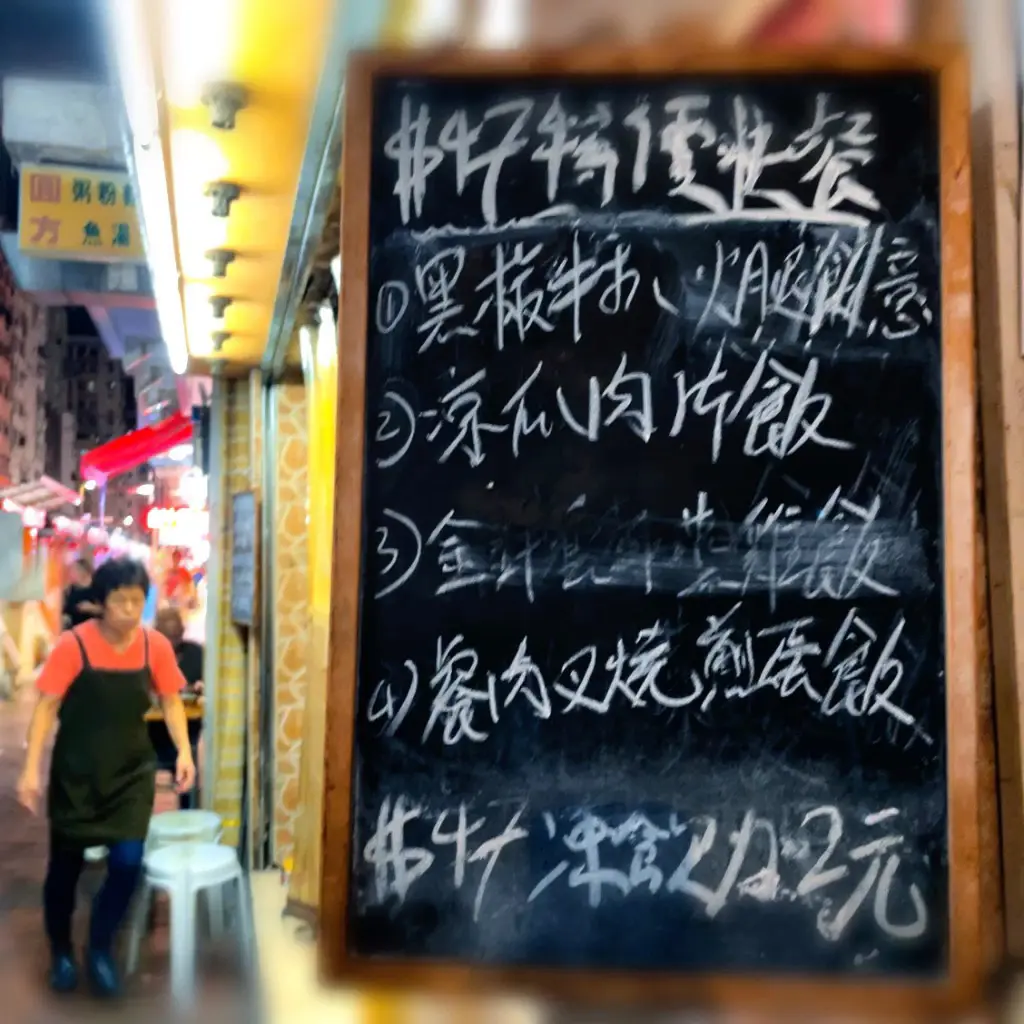 圓 粥粉麵
方 魚湯
$47特價快餐
①黑椒牛扒、火腿意
2)涼瓜肉片飯
3)金針雲耳蒸雞飯
4)餐肉叉燒煎蛋飯
$47 凍飲加2元